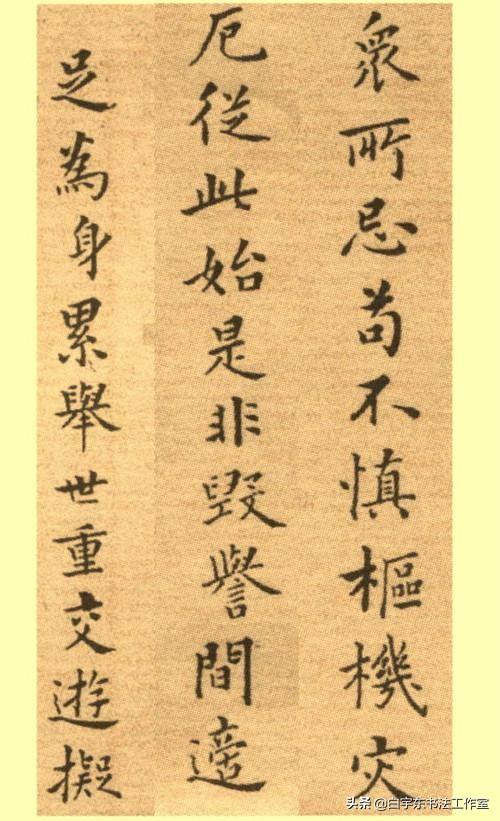 衆所忌苟不慎樞機灾
厄從此始是非毀譽間適
足為身累舉世重交遊擬
头条 @白宇东书法工作室